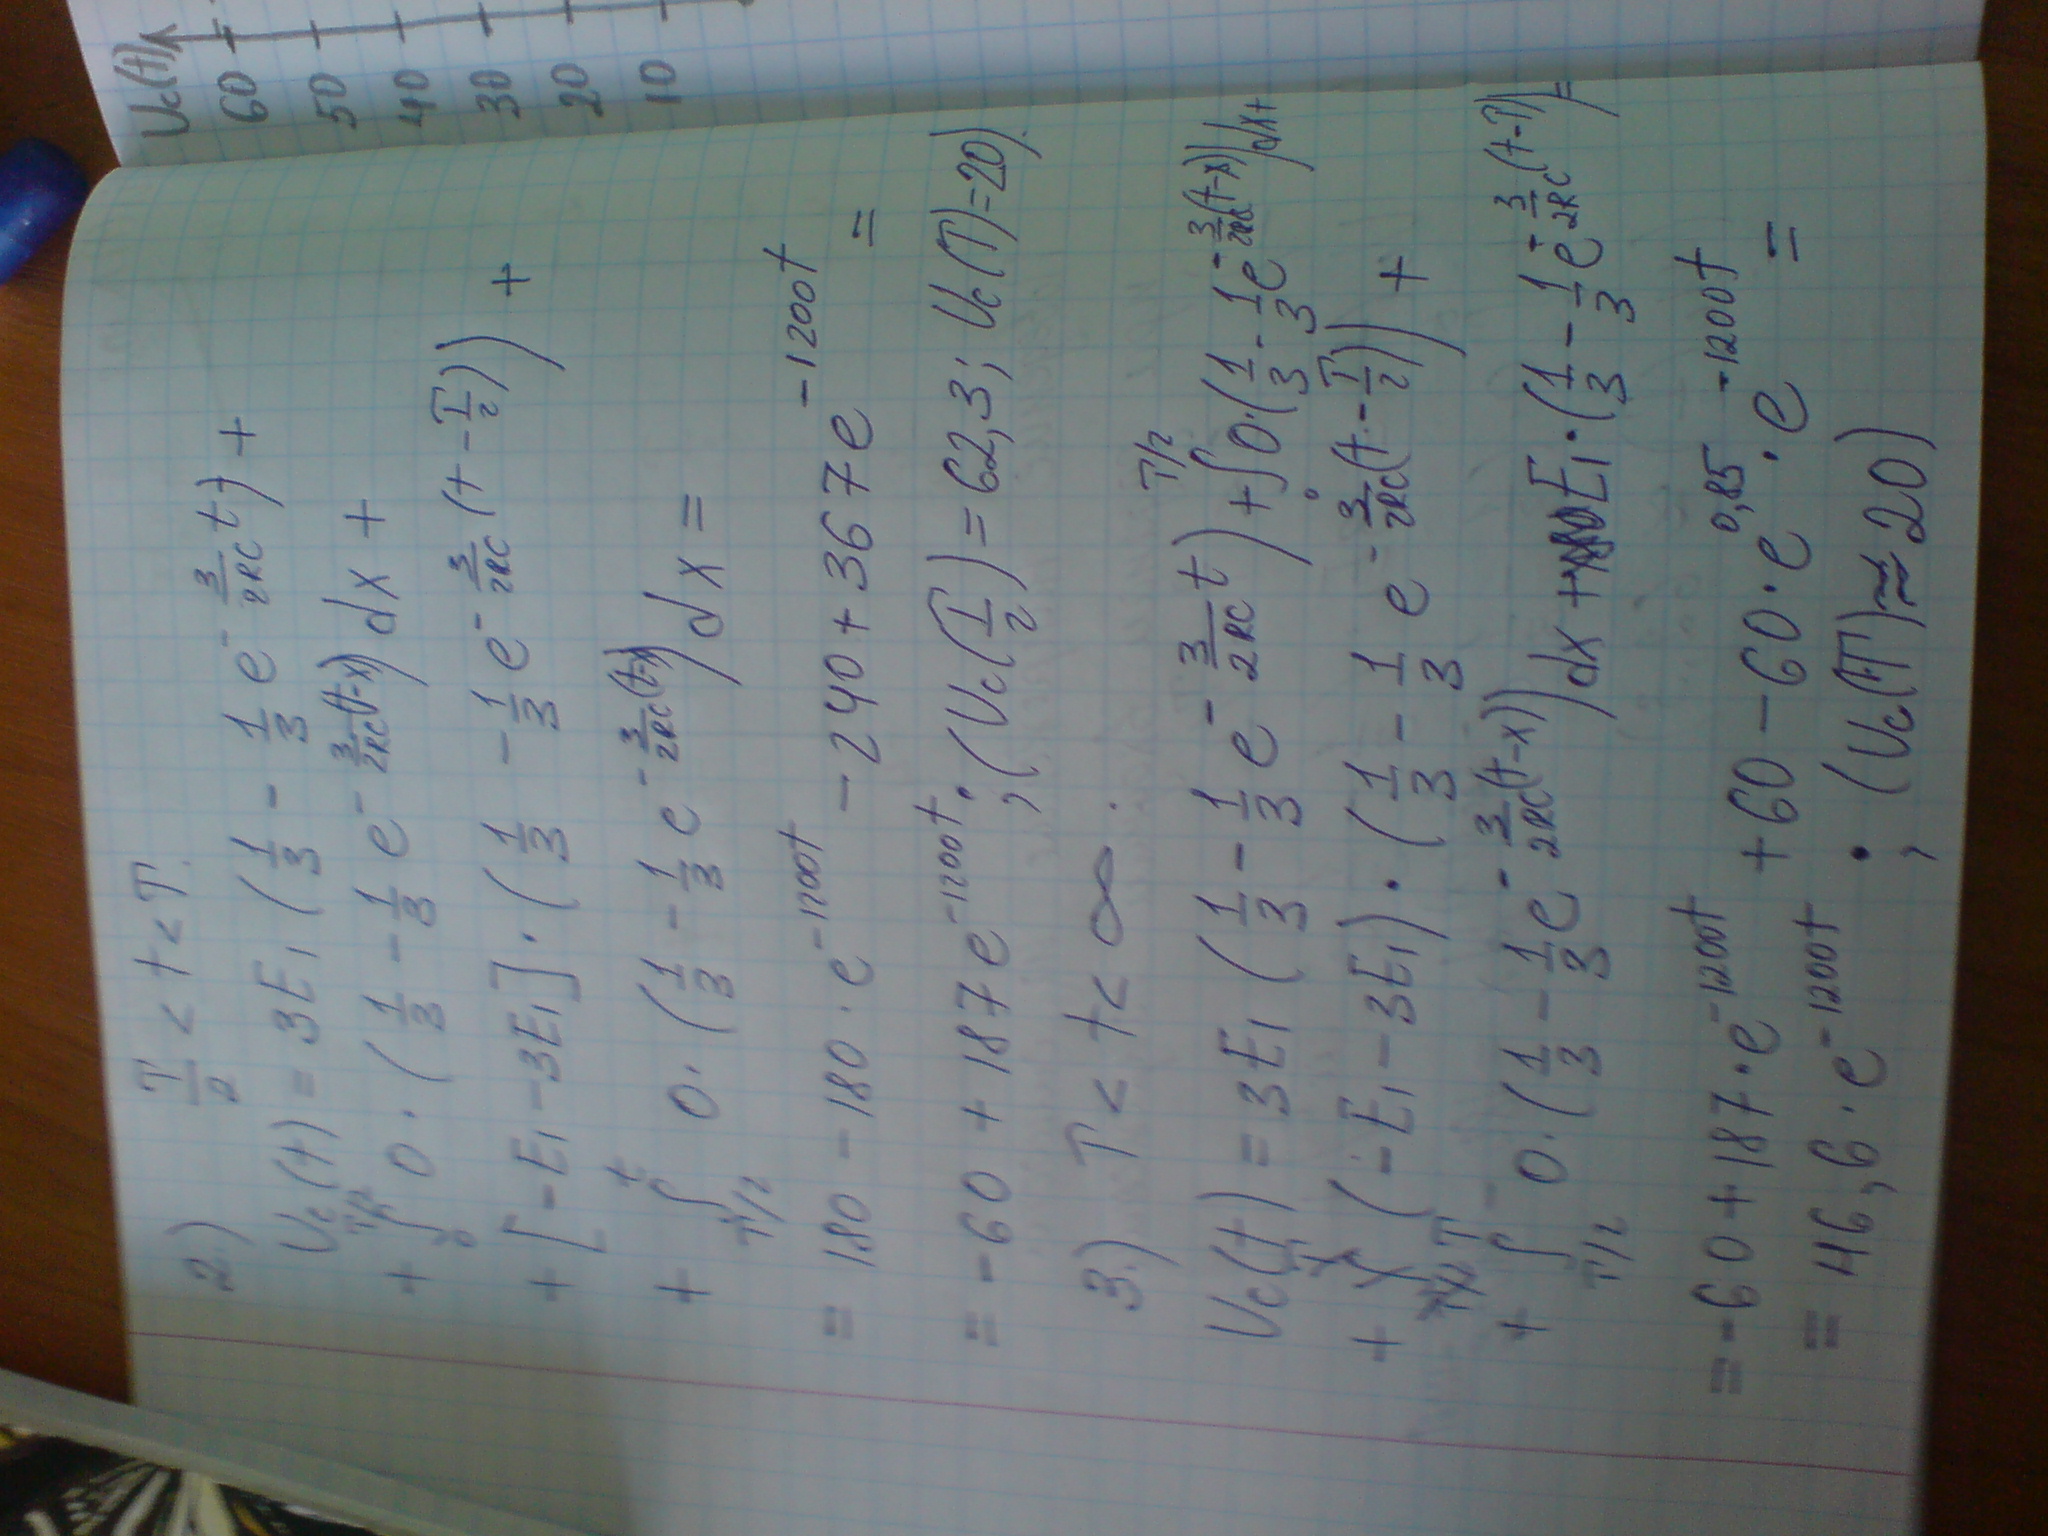 Uc(t)
60
50
40
30
20
10
2.) T/2 < t < T.
Uc(t) = 3E₁(1/3 - 1/3 e^(-3/(2RC) t)) +
+ ∫₀^(T/2) 0·(1/3 - 1/3 e^(-3/(2RC)(t-x)))dx +
+ [-E₁-3E₁]·(1/3 - 1/3 e^(-3/(2RC)(t-T/2))) +
+ ∫_(T/2)^t 0·(1/3 - 1/3 e^(-3/(2RC)(t-x)))dx =
= 180 - 180·e^(-1200t) - 240 + 367e^(-1200t) =
= -60 + 187e^(-1200t); (Uc(T/2) = 62,3; Uc(T) = 20).
3.) T < t < ∞.
Uc(t) = 3E₁(1/3 - 1/3 e^(-3/(2RC) t)) + ∫₀^(T/2) 0·(1/3 - 1/3 e^(-3/(2RC)(t-x)))dx +
+ (-E₁-3E₁)·(1/3 - 1/3 e^(-3/(2RC)(t-T/2))) +
+ ∫_(T/2)^T 0·(1/3 - 1/3 e^(-3/(2RC)(t-x)))dx + E₁·(1/3 - 1/3 e^(-3/(2RC)(t-T))) =
= -60 + 187·e^(-1200t) + 60 - 60·e^(0,85)·e^(-1200t) =
= 46,6·e^(-1200t); (Uc(T) ≈ 20)